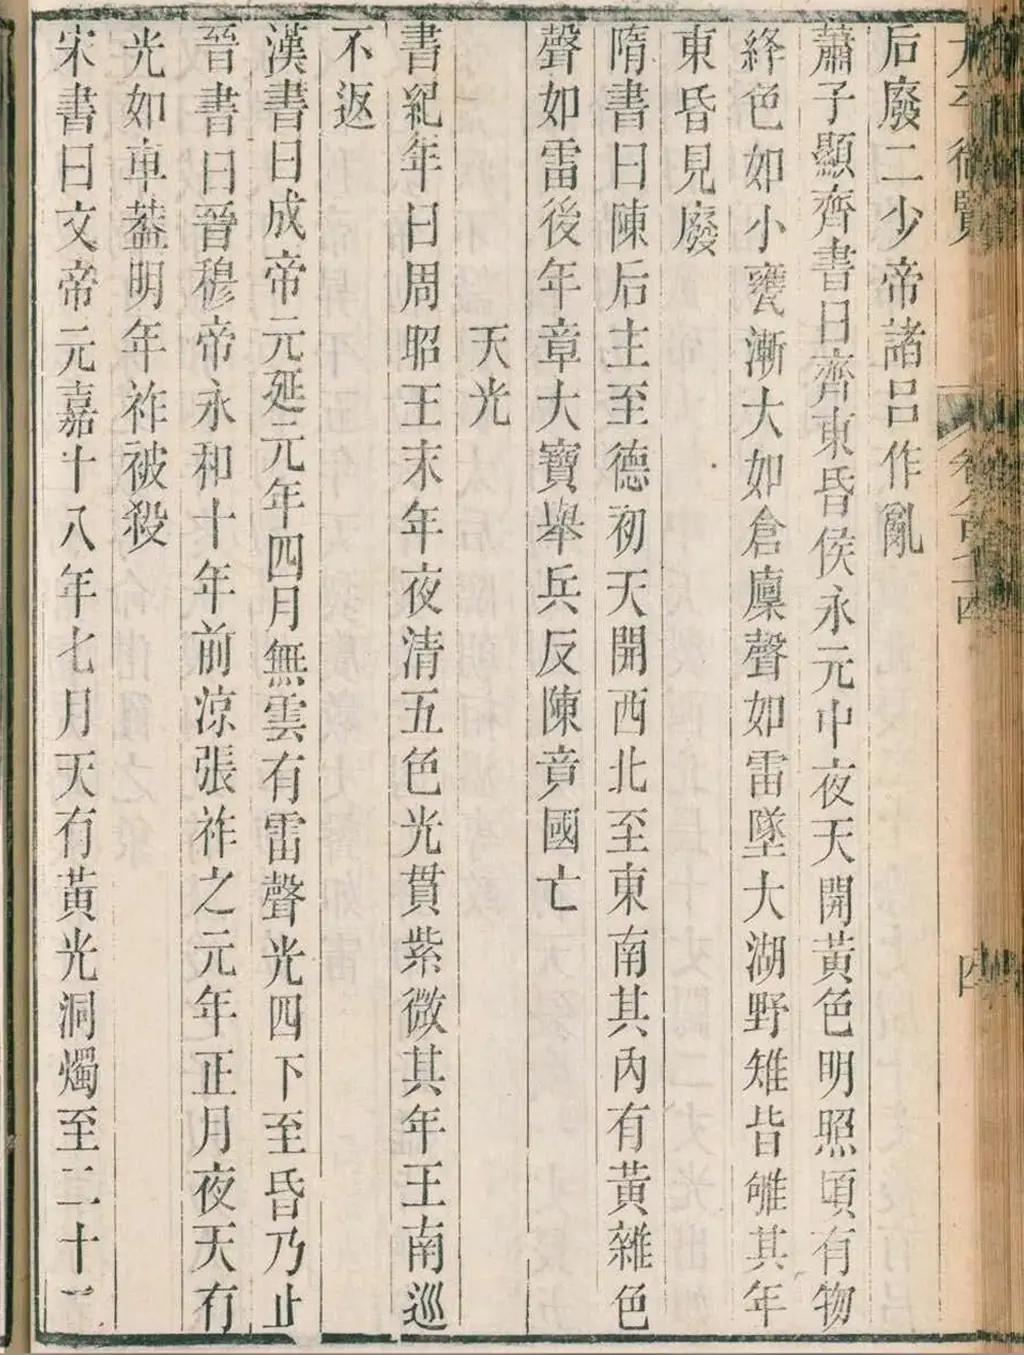 太平御覽
卷八百七十四
四
后廢二少帝諸呂作亂
蕭子顯齊書曰齊東昏侯永元中夜天開黃色明照頃有物
絳色如小甕漸大如倉廩聲如雷墜大湖野雉皆雊其年
東昏見廢
隋書曰陳后主至德初天開西北至東南其內有黃雜色
聲如雷後年章大寶舉兵反陳竟國亡
天光
書紀年曰周昭王末年夜清五色光貫紫微其年王南巡
不返
漢書曰成帝元延元年四月無雲有雷聲光四下至昏乃止
晉書曰晉穆帝永和十年前涼張祚之元年正月夜天有
光如車蓋明年祚被殺
宋書曰文帝元嘉十八年七月天有黃光洞燭至二十一